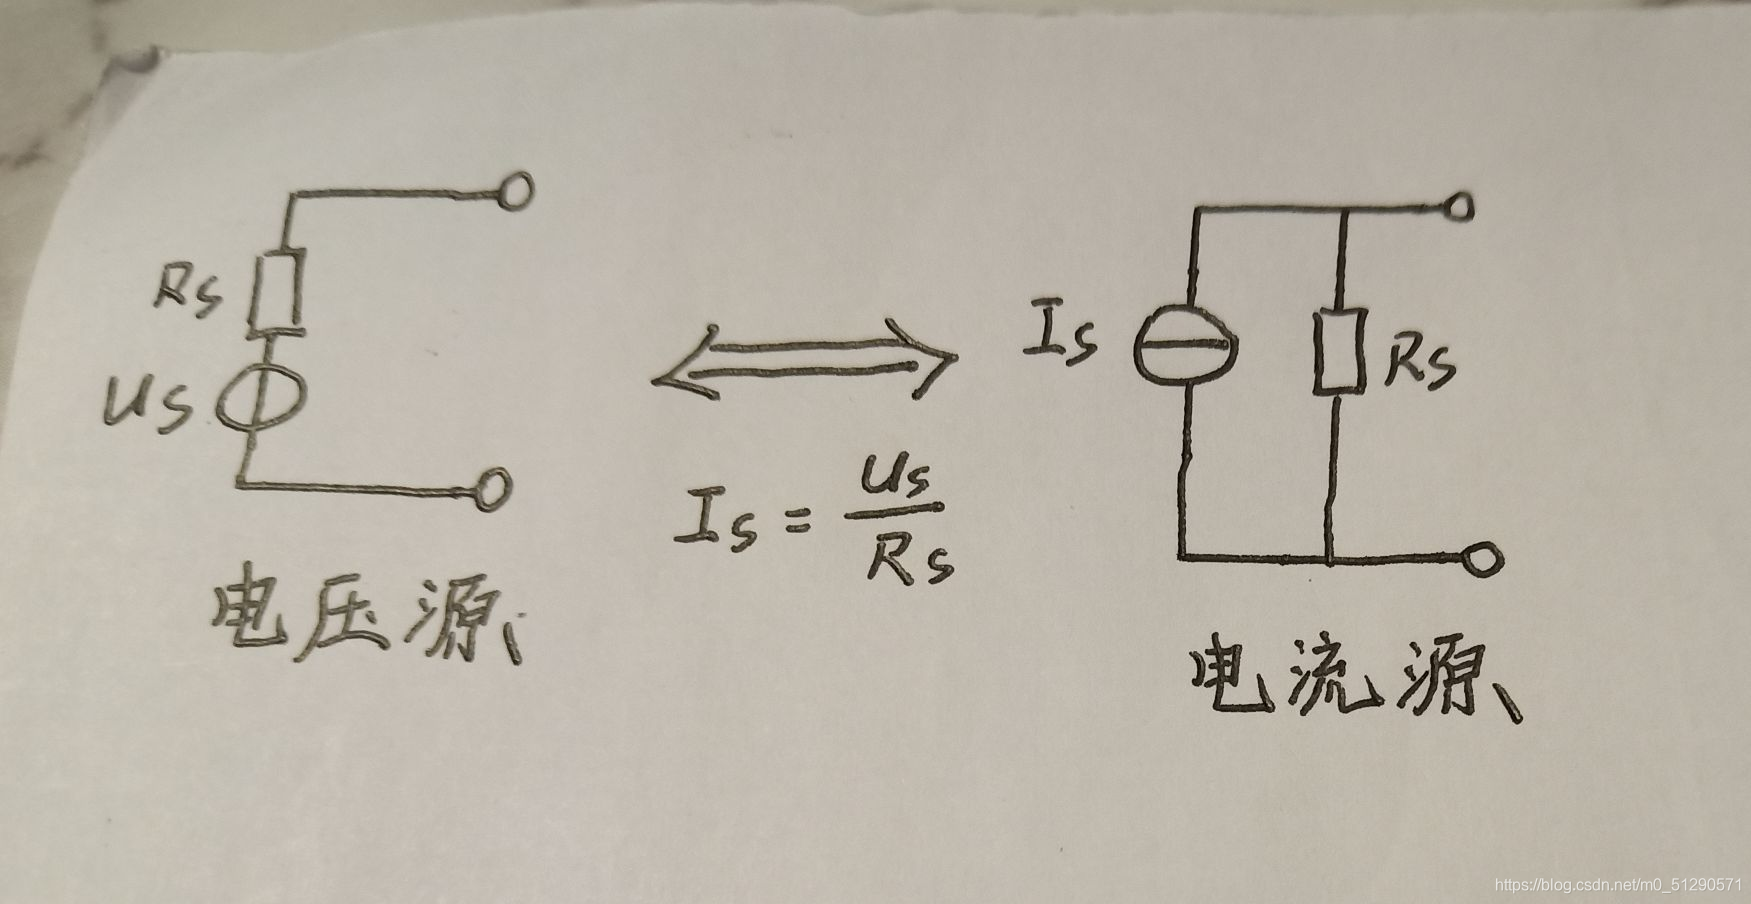 Rs
Us
电压源
Is = Us/Rs
Is
Rs
电流源
https://blog.csdn.net/m0_51290571